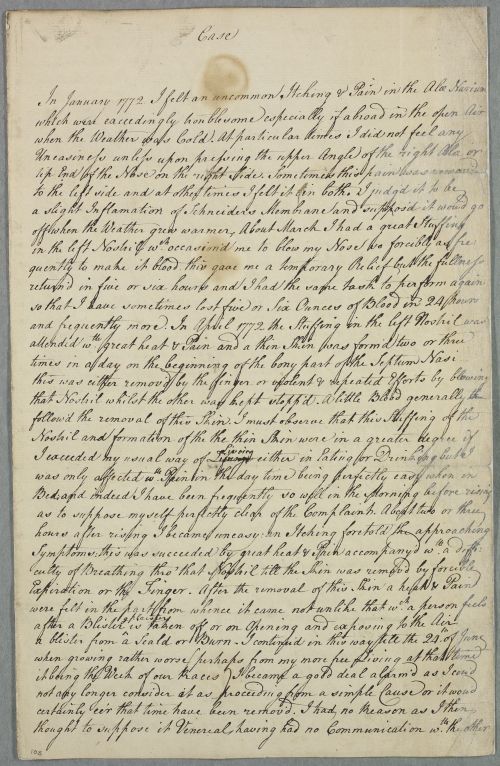 Case
In January 1772 I felt an uncommon Itching & Pain in the Alæ Narium
which were exceedingly troublesome especially if abroad in the open Air
when the Weather was Cold. At particular times I did not feel any
Uneasiness unless upon pressing the upper Angle of the right Ala or
tip End of the Nose on the right side. Sometimes this pain was removed
to the left side and at other times I felt it in both I judg'd it to be
a slight Inflamation of Schneider's Membrane and suppos'd it would go
off when the Weather grew warmer, About March I had a great Stuffing
in the left Nostril wch occasion'd me to blow my Nose so forcibly as fre
quently to make it blood this gave me a temporary Relief but the fullness
return'd in five or six hours and I had the same task to perform again
so that I have sometimes lost five or Six Ounces of Blood in 24 hours
and frequently more. In April 1772 the Stuffing in the left Nostril was
attended wth great heat & Pain and a thin Skin was form'd two or three
times in a day on the beginning of the bony part of the Septum Nasi
this was either remov'd by the finger or violent & repeated Efforts by blowing
that Nostril whilst the other was kept stopp'd. A little Blood generally
follow'd the removal of this Skin. I must observe that this Stuffing of the
Nostril and formation of the thin Skin were in a greater degree if
I exceeded my usual way of living either in Eating or Drinking but I
was only affected wth Pain in the day time being perfectly easy when in
Bed, and indeed I have been frequently so well in the Morning before rising
as to suppose myself perfectly clear of the Complaint. About two or three
hours after rising I became uneasy: an Itching foretold the approaching
Symptoms: this was succeeded by great heat & Pain accompany'd wth a diffi
culty of Breathing thro' that Nostril till the Skin was remov'd by forcible
Expiration or the Finger. After the removal of this Skin a heat & Pain
were felt in the part from whence it came not unlike that wch a person feels
after a Blister is taken off or on Opening and exposing to the Air
a blister from a Scald or Burn. I continued in this way till the 24 of June
when growing rather worse perhaps from my more free living at that time
it being the Week of our races I became a good deal alarm'd as I coud
not any longer consider it as proceeding from a simple Cause or it woud
certainly e'er that time have been remov'd. I had no reason as I then
thought to suppose it Venereal having had no Communication wth the other
108